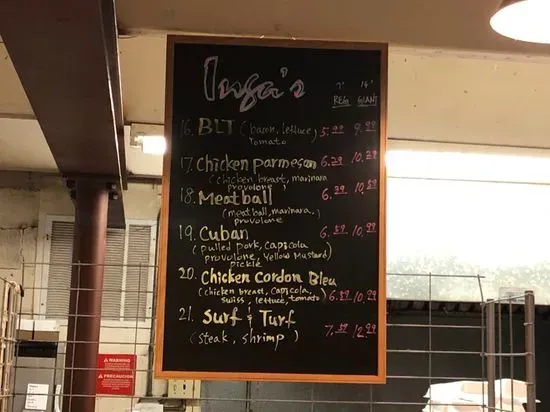 Inga's
7" 14"
REG GIANT
16. BLT (bacon, lettuce, tomato) 5.99 9.99
17. Chicken parmesan 6.29 10.29
(chicken breast, marinara
provolone)
18. Meatball 6.29 10.29
(meatball, marinara,
provolone
19. Cuban 6.89 10.99
(pulled pork, capicola
provolone, Yellow Mustard)
pickle
20. Chicken Cordon Bleu
(chicken breast, capicola,
swiss, lettuce, tomato) 6.89 10.99
21. Surf & Turf
(steak, shrimp) 7.89 12.99
WARNING
PRECAUCION